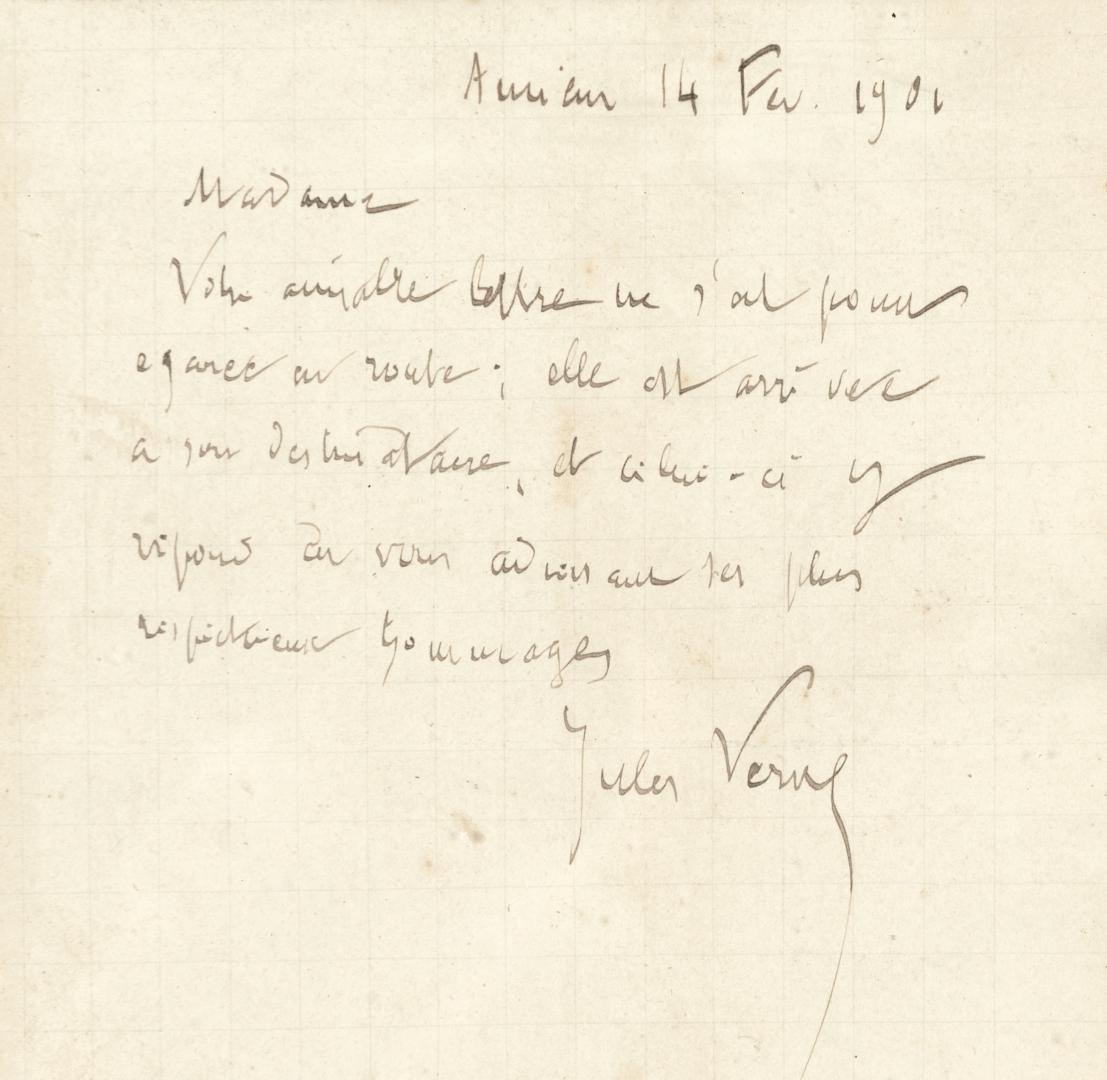 Amiens 14 Fev. 1901
Madame
Votre aimable lettre ne s'est point
egarée en route ; elle est arrivée
a son destinataire, et celui-ci y
répond en vous adressant ses plus
respectueux hommages
Jules Verne